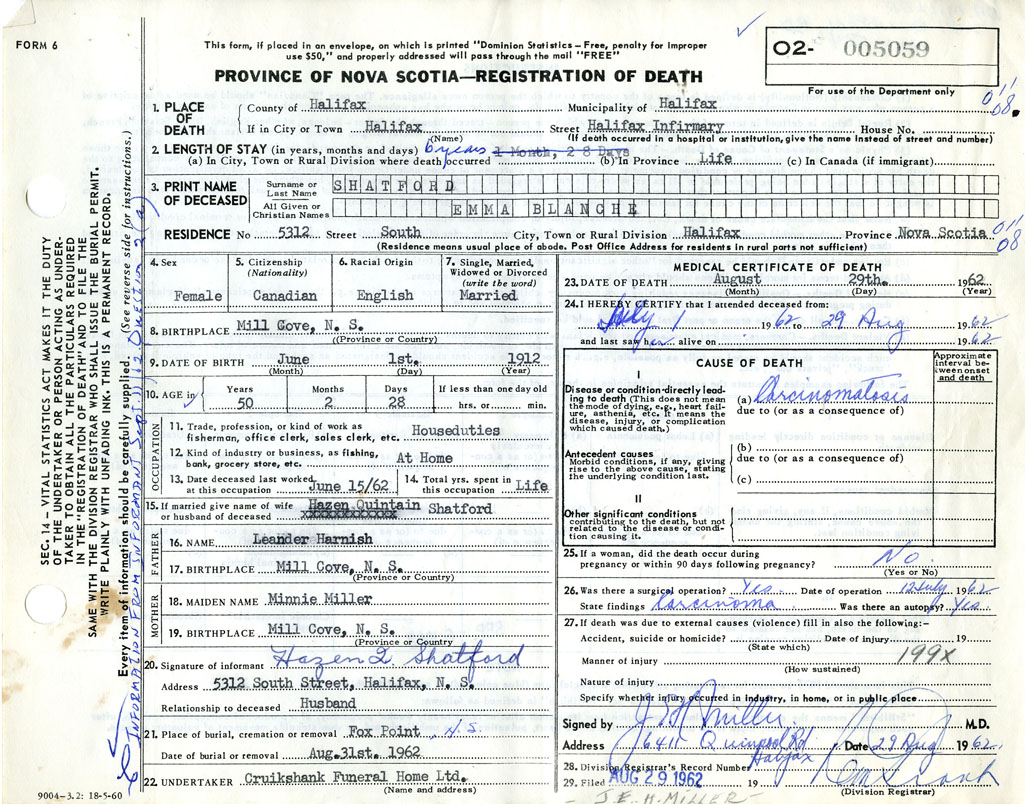 FORM 6
This form, if placed in an envelope, on which is printed "Dominion Statistics – Free, penalty for improper
use $50," and properly addressed will pass through the mail "FREE"
O2- 005059
For use of the Department only
PROVINCE OF NOVA SCOTIA—REGISTRATION OF DEATH
1. PLACE OF DEATH
County of Halifax Municipality of Halifax
If in City or Town Halifax Street Halifax Infirmary House No.
(Name) (If death occurred in a hospital or institution, give the name instead of street and number)
2. LENGTH OF STAY (in years, months and days) 6 years 1 Month, 2 8 Days Life
(a) In City, Town or Rural Division where death occurred (b) In Province (c) In Canada (if immigrant)
3. PRINT NAME OF DECEASED
Surname or Last Name SHATFORD
All Given or Christian Names EMMA BLANCHE
RESIDENCE No 5312 Street South City, Town or Rural Division Halifax Province Nova Scotia
(Residence means usual place of abode. Post Office Address for residents in rural parts not sufficient)
01
08.
01
08
4. Sex Female
5. Citizenship (Nationality) Canadian
6. Racial Origin English
7. Single, Married, Widowed or Divorced (write the word) Married
8. BIRTHPLACE Mill Cove, N. S.
(Province or Country)
9. DATE OF BIRTH June 1st. 1912
(Month) (Day) (Year)
10. AGE in Years Months Days If less than one day old
50 2 28 hrs. or min.
OCCUPATION
11. Trade, profession, or kind of work as
fisherman, office clerk, sales clerk, etc. Houseduties
12. Kind of industry or business, as fishing,
bank, grocery store, etc. At Home
13. Date deceased last worked
at this occupation June 15/62
14. Total yrs. spent in
this occupation Life
15. If married give name of wife
or husband of deceased Hazen Quintain Shatford
xxxxxxxxxxxx
FATHER
16. NAME Leander Harnish
17. BIRTHPLACE Mill Cove, N. S.
(Province or Country)
MOTHER
18. MAIDEN NAME Minnie Miller
19. BIRTHPLACE Mill Cove, N. S.
(Province or Country)
20. Signature of informant Hazen Q. Shatford
Address 5312 South Street, Halifax, N. S.
Relationship to deceased Husband
21. Place of burial, cremation or removal Fox Point, N.S.
Date of burial or removal Aug. 31st. 1962
22. UNDERTAKER Cruikshank Funeral Home Ltd.
(Name and address)
9004–3.2: 18-5-60
MEDICAL CERTIFICATE OF DEATH
23. DATE OF DEATH August 29th. 1962
(Month) (Day) (Year)
24. I HEREBY CERTIFY that I attended deceased from:
July 1 1962 to 29 Aug 1962
and last saw her alive on 1962
CAUSE OF DEATH
Approximate interval between onset and death
I
Disease or condition directly leading to death (This does not mean the mode of dying, e.g., heart failure, asthenia, etc. It means the disease, injury, or complication which caused death.)
(a) Carcinomatosis
due to (or as a consequence of)
Antecedent causes
Morbid conditions, if any, giving rise to the above cause, stating the underlying condition last.
(b)
due to (or as a consequence of)
(c)
II
Other significant conditions contributing to the death, but not related to the disease or condition causing it.
25. If a woman, did the death occur during
pregnancy or within 90 days following pregnancy? No.
(Yes or No)
26. Was there a surgical operation? Yes. Date of operation 12 July 1962
State findings Carcinoma Was there an autopsy? Yes
27. If death was due to external causes (violence) fill in also the following:–
Accident, suicide or homicide? Date of injury 19
(State which)
Manner of injury 199X
(How sustained)
Nature of injury
Specify whether injury occurred in industry, in home, or in public place
Signed by J E H Miller M.D.
Address 6411 Quinpool Rd Halifax Date 29 Aug 1962
28. Division Registrar's Record Number
29. Filed AUG 29 1962 19
(Division Registrar)
– J. E. H. MILLER –
SEC. 14 – VITAL STATISTICS ACT MAKES IT THE DUTY
OF THE UNDERTAKER OR PERSON ACTING AS UNDER-
TAKER TO OBTAIN ALL THE PARTICULARS REQUIRED
IN THE "REGISTRATION OF DEATH" AND TO FILE THE
SAME WITH THE DIVISION REGISTRAR WHO SHALL ISSUE THE BURIAL PERMIT.
WRITE PLAINLY WITH UNFADING INK. THIS IS A PERMANENT RECORD.
Every item of information should be carefully supplied. (See reverse side for instructions.)
INFORMATION FROM INFORMANT Sept. 11/62 QUESTION 2 (a)